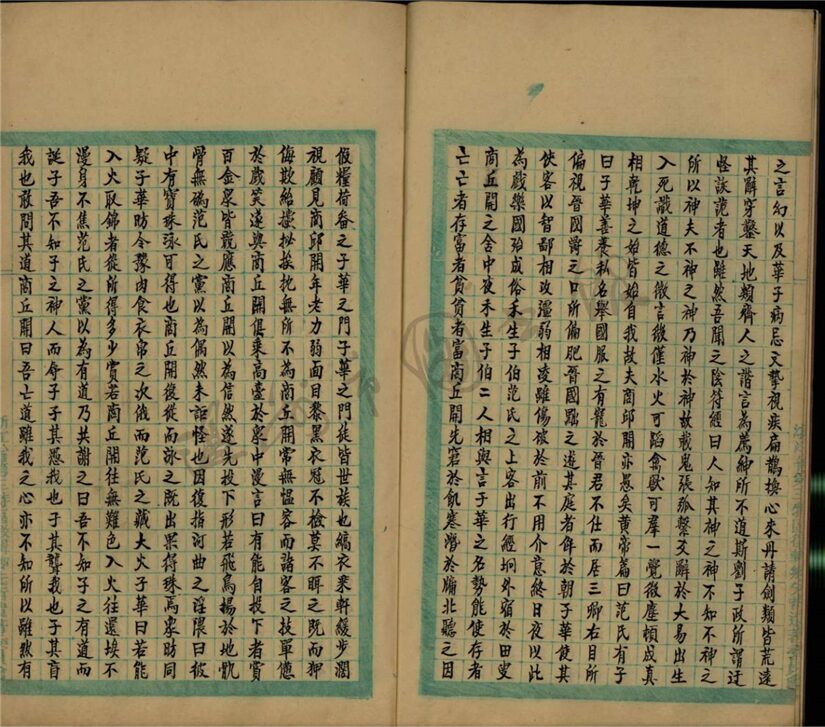 之言幻以及華子病忘文摯視疾扁鵲換心來丹請劍類皆荒遠
其辭穿鑿天地類齊人之諧言為薦紳所不道斯劉子政所謂迂
怪誅詭者也雖然吾聞之陰符經曰人知其神之神不知不神之
所以神夫不神之神乃神於神故載鬼張弧繫爻辭於大易出生
入死譏道德之微言後僅水火可蹈禽獸可羣一覺微塵頓成真
相乾坤之始皆始自我故夫商邱開亦愚矣黃帝篇曰范氏有子
曰子華善養私名舉國服之有寵於晉君不仕而居三卿右目所
偏視晉國爵之口所偏肥晉國黜之遊其庭者侔於朝子華使其
俠客以智鄙相攻彊弱相凌雖傷破於前不用介意終日夜以此
為戲樂國殆成俗禾生子伯范氏之上客出行經坰外宿於田叟
商丘開之舍中夜禾生子伯二人相與言子華之名勢能使存者
亡亡者存富者貧貧者富商丘開先窘於飢寒潛於牖北聽之因
假糧荷畚之子華之門子華之門徒皆世族也縞衣乘軒緩步濶
視顧見商邱開年老力弱面目黎黑衣冠不檢莫不眲之既而狎
侮欺紿攩㧙挨抌無所不為商丘開常無慍容而諸客之技單憊
於戲笑遂與商丘開俱乘高臺於眾中漫言曰有能自投下者賞
百金眾皆競應商丘開以為信然遂先投下形若飛鳥揚於地肌
骨無䃣范氏之黨以為偶然未詎怪也因復指河曲之淫隈曰彼
中有寶珠泳可得也商丘開復從而泳之既出果得珠焉眾昉同
疑子華昉令豫肉食衣帛之次俄而范氏之藏大火子華曰若能
入火取錦者從所得多少賞若商丘開往無難色入火往還埃不
漫身不焦范氏之黨以為有道乃共謝之曰吾不知子之有道而
誕子吾不知子之神人而辱子子其愚我也子其聾我也子其盲
我也敢問其道商丘開曰吾亡道雖我之心亦不知所以雖然有